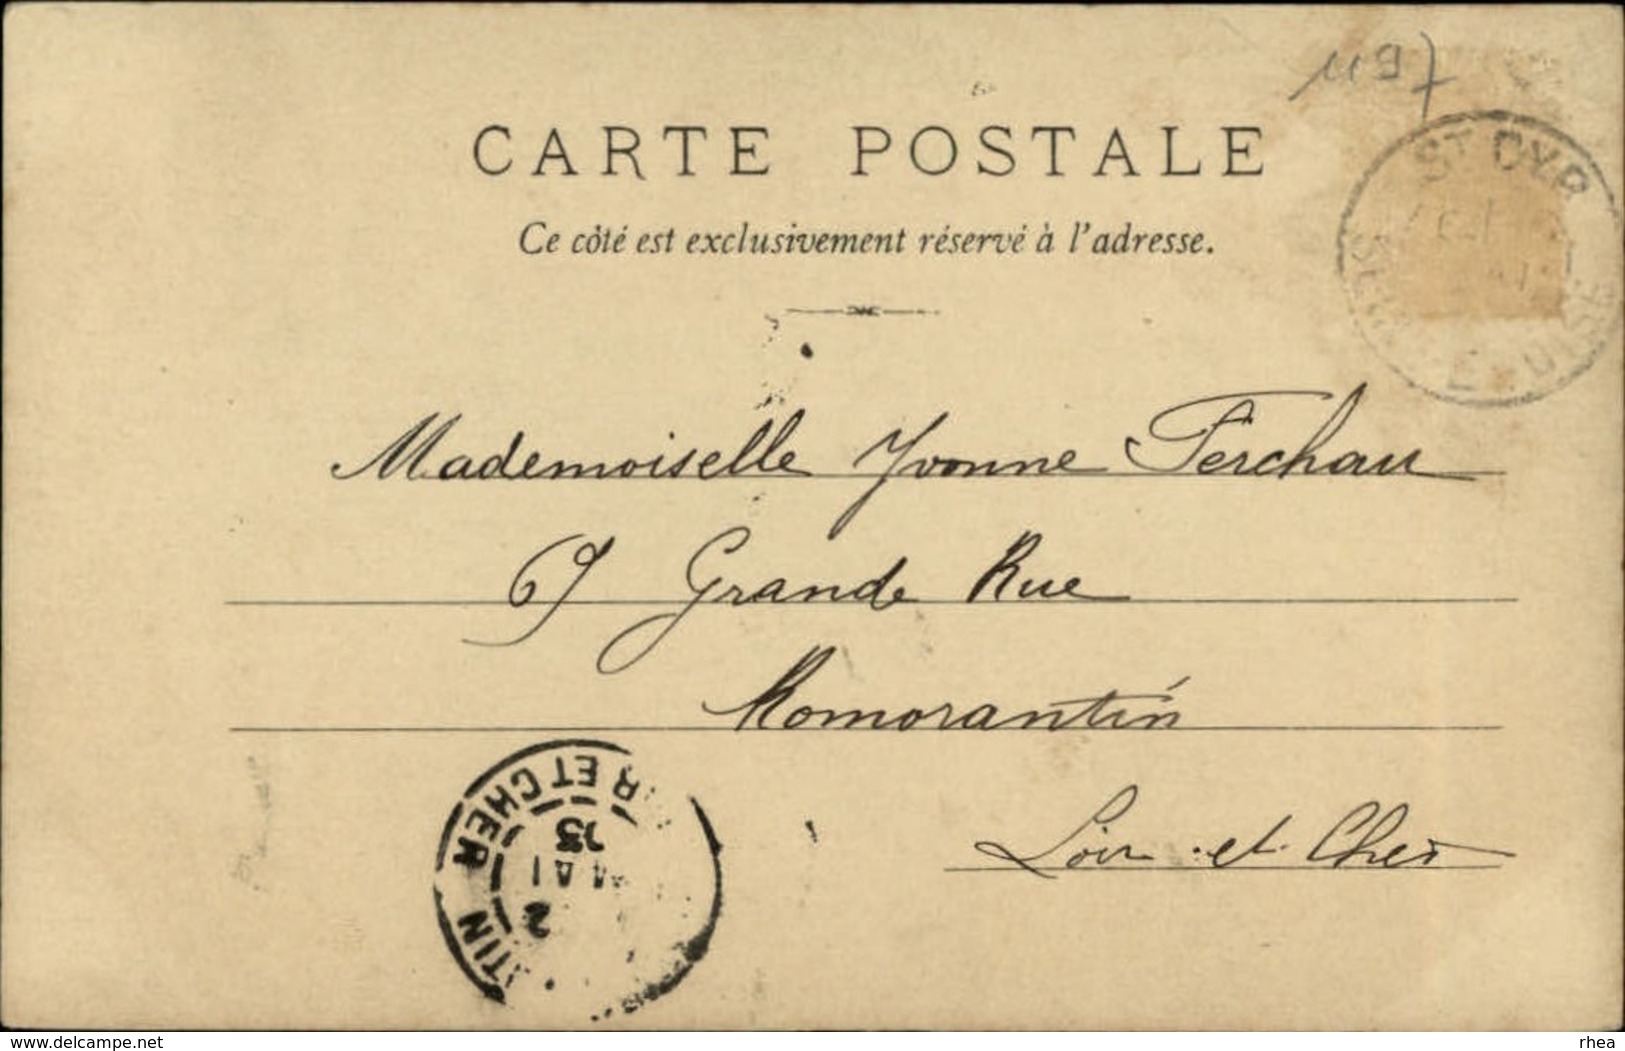 CARTE POSTALE
Ce côté est exclusivement réservé à l'adresse.
ST CYR
OISE
Mademoiselle Yvonne Ferchau
69 Grande Rue
Romorantin
Loir-et-Cher
TIN
R ET CHER
2
MAI
03
www.delcampe.net
rhea